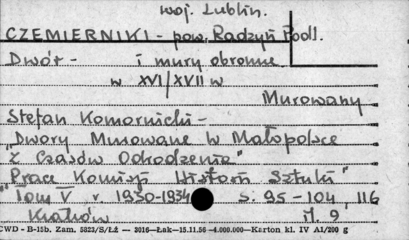 woj. Lublin.
CZEMIERNIKI - pow. Radzyń Podl.
Dwór - i mury obronne
w XVI/XVII w
Murowany
Stefan Komornicki -
"Dwory Murowane w Małopolsce
z Czasów Odrodzenia"
"Prace Komisji Historii Sztuki"
"Tom V, r. 1930-1934 s. 95-104, 116
Kraków il. 9
CWD - B-15b. Zam. 5823/S/ŁŻ — 3016—Łak—15.11.56—4.000.000—Karton kl. IV A1/200 g